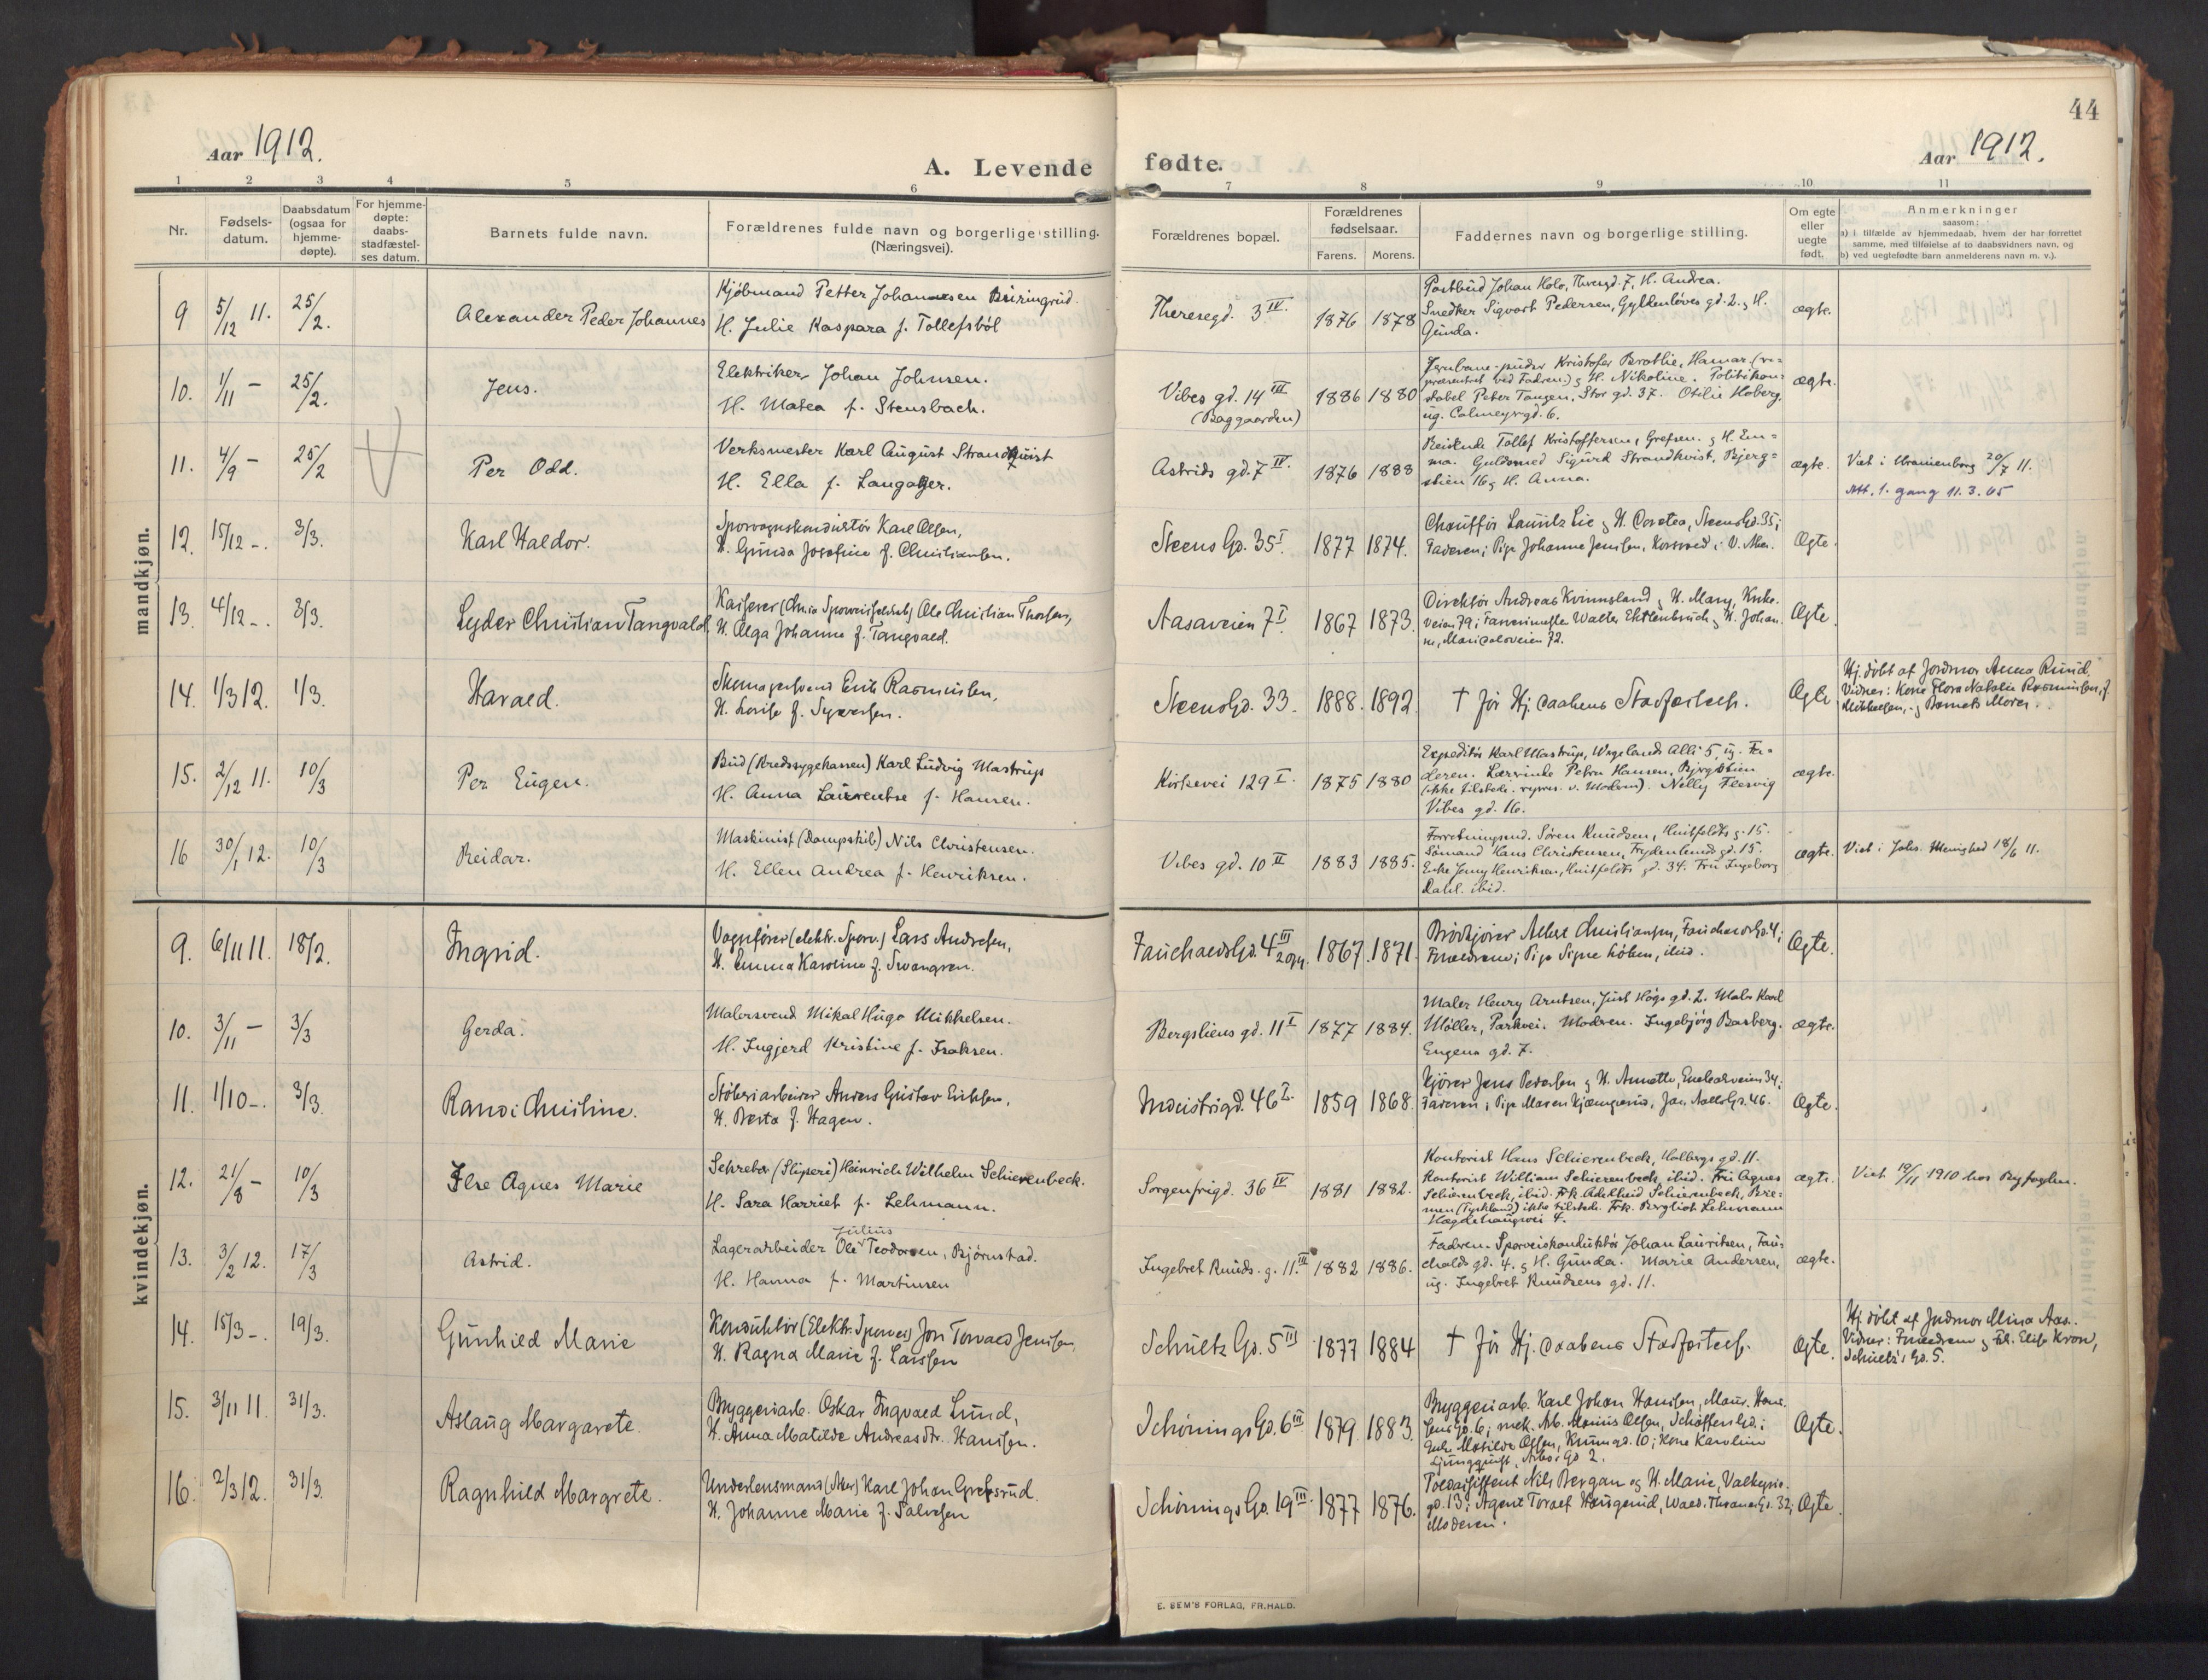 44
Aar 1912.
A. Levende fødte.
Aar 1912.
1 2 3 4 5 6 7 8 9 10 11
Nr.
Fødsels-
datum.
Daabsdatum
(ogsaa for
hjemme-
døpte).
For hjemme-
døpte:
daabs-
stadfæstel-
ses datum.
Barnets fulde navn.
Forældrenes fulde navn og borgerlige stilling.
(Næringsvei).
Forældrenes bopæl.
Forældrenes
fødselsaar.
Farens. Morens.
Faddernes navn og borgerlige stilling.
Om egte
eller
uegte
født.
Anmerkninger
saasom:
a) i tilfælde av hjemmedaab, hvem der har forrettet
samme, med tilføielse af to daabsvidners navn, og
b) ved uegtefødte barn anmelderens navn m. v.).
mandkjøn.
9 5/12 11. 25/2. Alexander Peder Johannes
Kjøbmand Petter Johannesen
H. Julie Kaspara f. Tollefsböl
Theresegd. 3 IV. 1876 1878
Postbud Johan Holo, H. Andrea.
Snedker Sigvart Pedersen, Gyldenløves gd. 2. & H.
Gunda.
ægte.
10. 1/11 – 25/2. Jens.
Elektriker Johan Johnsen.
H. Matea f. Stensbach.
Vibes gd. 14 III
(Baggaarden)
1886 1880
Kristofer Bratlie, Hamar (re-
præsentert ved Fadren) & H. Nikoline. Politikon-
stabel Peter Tangen, Stor gd. 37. Otilie Hoberg,
ug. Calmeyergd. 6.
ægte.
11. 4/9 – 25/2 Per Odd.
Verksmester Karl August Strandquist
H. Ella f. Langager.
Astrids gd. 7 IV. 1876 1883
Reisende Tollef Kristoffersen, Grefsen. & H. Em-
ma. Guldsmed Sigurd Strandkvist, Bjerg-
stien 16 & H. Anna.
ægte.
Viet i Uranienborg 20/7 11.
Att. 1. gang 11.3.65
12. 15/12 –. 3/3. Karl Haldor.
Sporvognskonduktør Karl Olsen,
H. Gunda Josefine f. Christiansen.
Steens Gd. 35 I. 1877 1874.
Chauffør Lauritz Lie & H. Dorotea, Steens Gd. 35;
Faderen; Pige Johanne Jensen, Korsved i V. Aker.
Ægte.
13. 4/12 –. 3/3. Lyder Christian Tangvald.
Kasserer (Chr.ia Sporveisselskab) Ole Christian Thorsen,
H. Olga Johanne f. Tangvald.
Aasaveien 7 I. 1867 1873.
Direktør Andreas Kvinnsland & H. Mary, Kirke-
veien 79; Walter & H. Johan-
ne, Maridalsveien 72.
Ægte
14. 1/3 12. 1/3. Harald.
Skomagersvend Erik Rasmussen,
H. Lovise f. Syversen.
Steens Gd. 33. 1888. 1892.
† før Hj. daabens Stadfæstelse.
Ægte
Hj. døbt af Jordmor Anna Ruud.
Vidner: Kone Flora Natalie Rasmussen, f.
Mikkelsen, & Barnets Moder.
15. 2/12 11. 10/3 Per Eugen.
Bud (Kredssygekassen) Karl Ludvig Mastrup
H. Anna Laurentse f. Hansen.
Kirkevei 129 I. 1875 1880
Expeditør Karl Mastrup, Wergelands Allé 5, ug. Fa-
deren. Lærerinde Petra Hansen, Bjergstien
(ikke tilstede. repres. v. Modren). Nelly Flesvig
Vibes gd. 16.
ægte.
16 30/1 12. 10/3 Reidar.
Maskinist (Dampskib) Nils Christensen.
H. Ellen Andrea f. Henriksen.
Vibes gd. 10 II 1883 1885.
Forretningsmd. Søren Knudsen, Huitfeldts g. 15.
Sømand Hans Christensen, Frydenlunds gd. 15.
Enke Jenny Henriksen, Huitfeldts gd. 34. Fru Ingeborg
Dahl. ibid.
ægte.
Viet i Johs. Menighed 18/6 11.
kvindekjøn.
9. 6/11 11. 18/2. Ingrid.
Vognfører (elektr. Sporv.) Lars Andresen,
H. Emma Karoline f. Svangren.
Fauchalds Gd. 4 III 2 opg. 1867. 1871.
Brødkjører Albert Christiansen, Fauchalds Gd. 4;
Forældrene; Pige Signe ibid.
Ægte.
10. 3/11 – 3/3 Gerda.
Malersvend Mikal Hugo Mikkelsen.
H. Ingjerd Kristine f. Isaksen.
Bergsliens gd. 11 I 1877 1884.
Maler Henry Arntsen, Just Høgs gd. 2. Maler Karl
Møller, Parkvei. Modren. Ingebjørg Basberg.
Eugenia gd. 7.
ægte.
11. 1/10 –. 3/3. Randi Christine.
Støberiarbeider Anders Gustav Eriksen,
H. Berta f. Hagen.
Industrigd. 46 I. 1859 1868.
Kjører Jens Pedersen & H. Annette, Enebakveien 34;
Faderen; Pige Maren Jac. Aalls Gd. 46.
Ægte.
12. 21/8 – 10/3 Ilse Agnes Marie
(Sliperi) Heinrich Wilhelm Schierenbeck.
H. Sara Harriet f. Lehmann.
Sorgenfrigd. 36 IV 1881 1882.
Kontorist Hans Schierenbeck, Holbergs gd. 11.
Kontorist William Schierenbeck, ibid. Fru Agnes
Schierenbeck, ibid. Frk. Adelheid Schierenbeck, Bre-
men (Tyskland) ikke tilstede. Frk. Bergliot Lehmann
Hægdehaugsvei 4.
ægte.
Viet 19/11 1910 hos Byfogden.
13. 3/2 12. 17/3 Astrid.
Julius
Lagerarbeider Ole Teodorsen, Bjørnstad.
H. Hanna f. Martinsen
Ingebret Knuds. g. 11. III 1882 1886.
Fadren. Sporveiskonduktør Johan Lauritsen, Fau-
chalds gd. 4. & H. Gunda. Marie Andersen,
ug. Ingebret Knudsens gd. 11.
ægte.
14. 15/3 –. 19/3. Gunhild Marie
Konduktør (Elektr. Sporvei) Jon Torvald Jensen,
H. Ragna Marie f. Larssen
Schultz Gd. 5 III 1877 1884
† før Hj. daabens Stadfæstelse.
Ægte.
Hj. døbt af Jordmor Mina Aas.
Vidner: Forældrene & Frk. Elise Krow,
Schultz's Gd. 5.
15. 3/11 11. 31/3. Aslaug Margarete.
Bryggeriarb. Oskar Ingvald Lund,
H. Anna Matilde Andreasdtr. Hansen.
Schønings Gd. 6 III 1879 1883.
Bryggeriarb. Karl Johan Hansen, Maur. Han-
sens Gd. 6; mek. Arb. Olsen, Schøffers Gd.;
Matilde Olsen, Krumgd. 10; Kone Karoline
Ljungquist, Arbos Gd 2.
Ægte.
16. 2/3 12. 31/3. Ragnhild Margrete.
Underlensmand (Aker) Karl Johan Grefsrud.
H. Johanne Marie f. Salvesen
Schønings Gd. 19 III. 1877 1876.
Toldassistent Nils Bergan og H. Marie, Valkyrie-
gd. 13; Agent Toralf Haugerud, Wald. Thranes Gd. 32;
Moderen.
Ægte.
E. SEM'S FORLAG, FR.HALD.